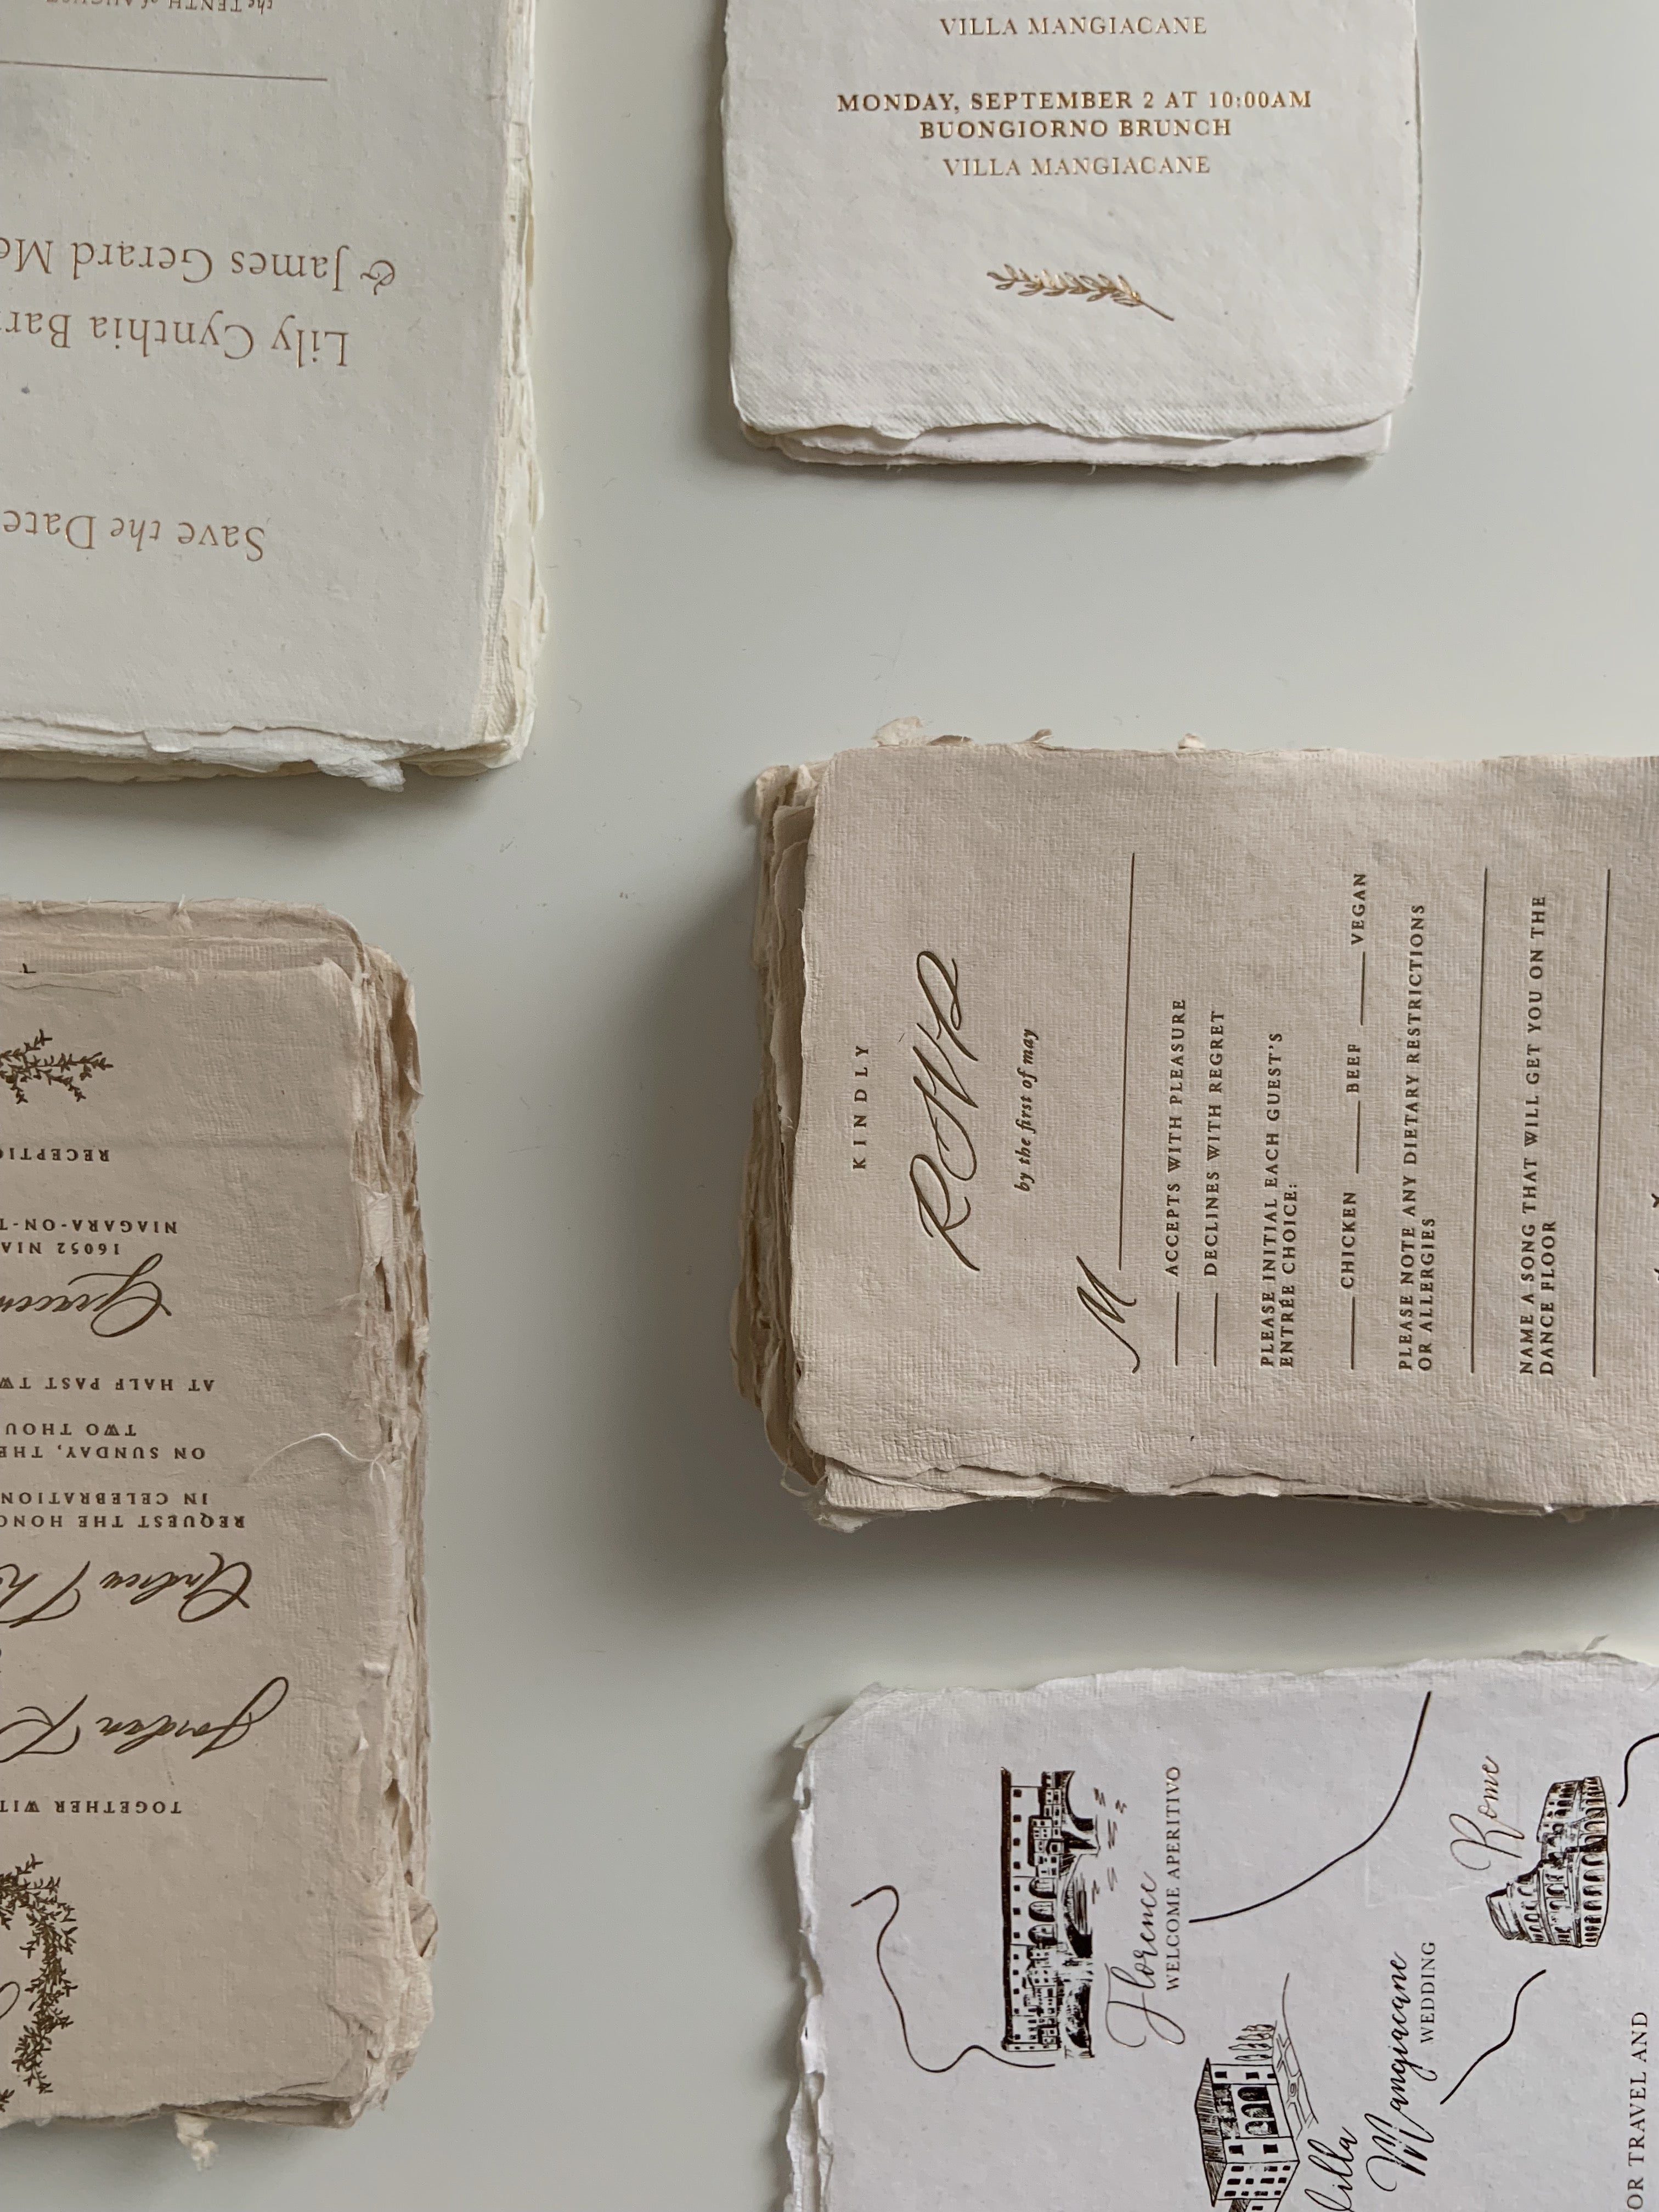 the TENTH of AUGUST
& James Gerard
Lily Cynthia
Save the Date
VILLA MANGIACANE
MONDAY, SEPTEMBER 2 AT 10:00AM
BUONGIORNO BRUNCH
VILLA MANGIACANE
KINDLY
RSVP
by the first of may
M
ACCEPTS WITH PLEASURE
DECLINES WITH REGRET
PLEASE INITIAL EACH GUEST'S
ENTRÉE CHOICE:
CHICKEN BEEF VEGAN
PLEASE NOTE ANY DIETARY RESTRICTIONS
OR ALLERGIES
NAME A SONG THAT WILL GET YOU ON THE
DANCE FLOOR
TOGETHER
Jordan
Andrew
REQUEST THE
IN CELEBRATION
ON SUNDAY, THE
TWO
AT HALF PAST
16052
NIAGARA-ON-
Florence
WELCOME APERITIVO
Villa
Mangiacane
WEDDING
Rome
TRAVEL AND